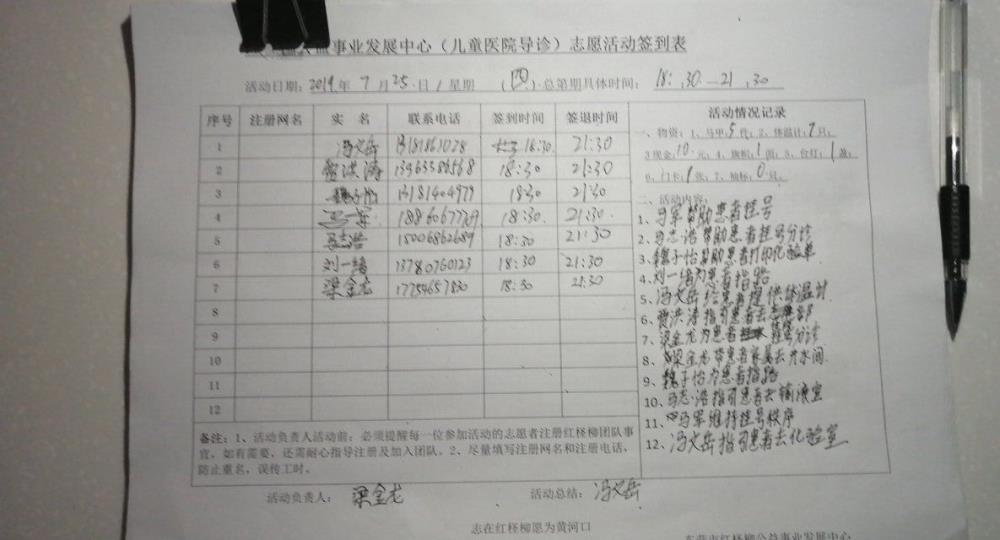 事业发展中心（儿童医院导诊）志愿活动签到表
活动日期：2019年 7月25日/星期（四）总第期具体时间：18:30—21:30
序号 注册网名 实 名 联系电话 签到时间 签退时间
1 冯文岳 18:30 21:30
2 贾洪涛 18:30 21:30
3 魏子怡 13181404979 18:30 21:30
4 马军 18:30 21:30
5 马志浩 15006862689 18:30 21:30
6 刘一绪 13780760123 18:30 21:30
7 梁金龙 17754657830 18:30 21:30
8
9
10
11
12
备注：1、活动负责人活动前：必须提醒每一位参加活动的志愿者注册红柽柳团队事
宜，如有需要，还需耐心指导注册及加入团队。2、尽量填写注册网名和注册电话，
防止重名，误传工时。
活动情况记录
一、物资：1、马甲：5件；2、体温计：7只；
3现金：10元；4、旗帜：1面；5、台灯：1盏；
6、门卡：1张；7、袖标：0只。
二、活动内容：
1、马军帮助患者挂号
2、马志浩帮助患者挂号分诊
3、魏子怡帮助患者打印化验单
4、刘一绪为患者指路
5、冯文岳给患者提供体温计
6、贾洪涛指引患者去
7、梁金龙为患者 分诊
8、梁金龙带患者 去开水间
9、魏子怡为患者指路
10、马志浩指引患者去输液室
11、马军维持挂号秩序
12、冯文岳指引患者去化验室
活动负责人：梁金龙 活动总结：冯文岳
志在红柽柳愿为黄河口
东营市红柽柳公益事业发展中心